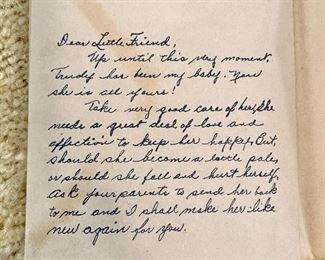 Dear Little Friend,
Up until this very moment,
Trudy has been my baby. Now
she is all yours!
Take very good care of her, she
needs a great deal of love and
affection to keep her happy. But,
should she become a little pale,
or should she fall and hurt herself,
ask your parents to send her back
to me and I shall make her like
new again for you.